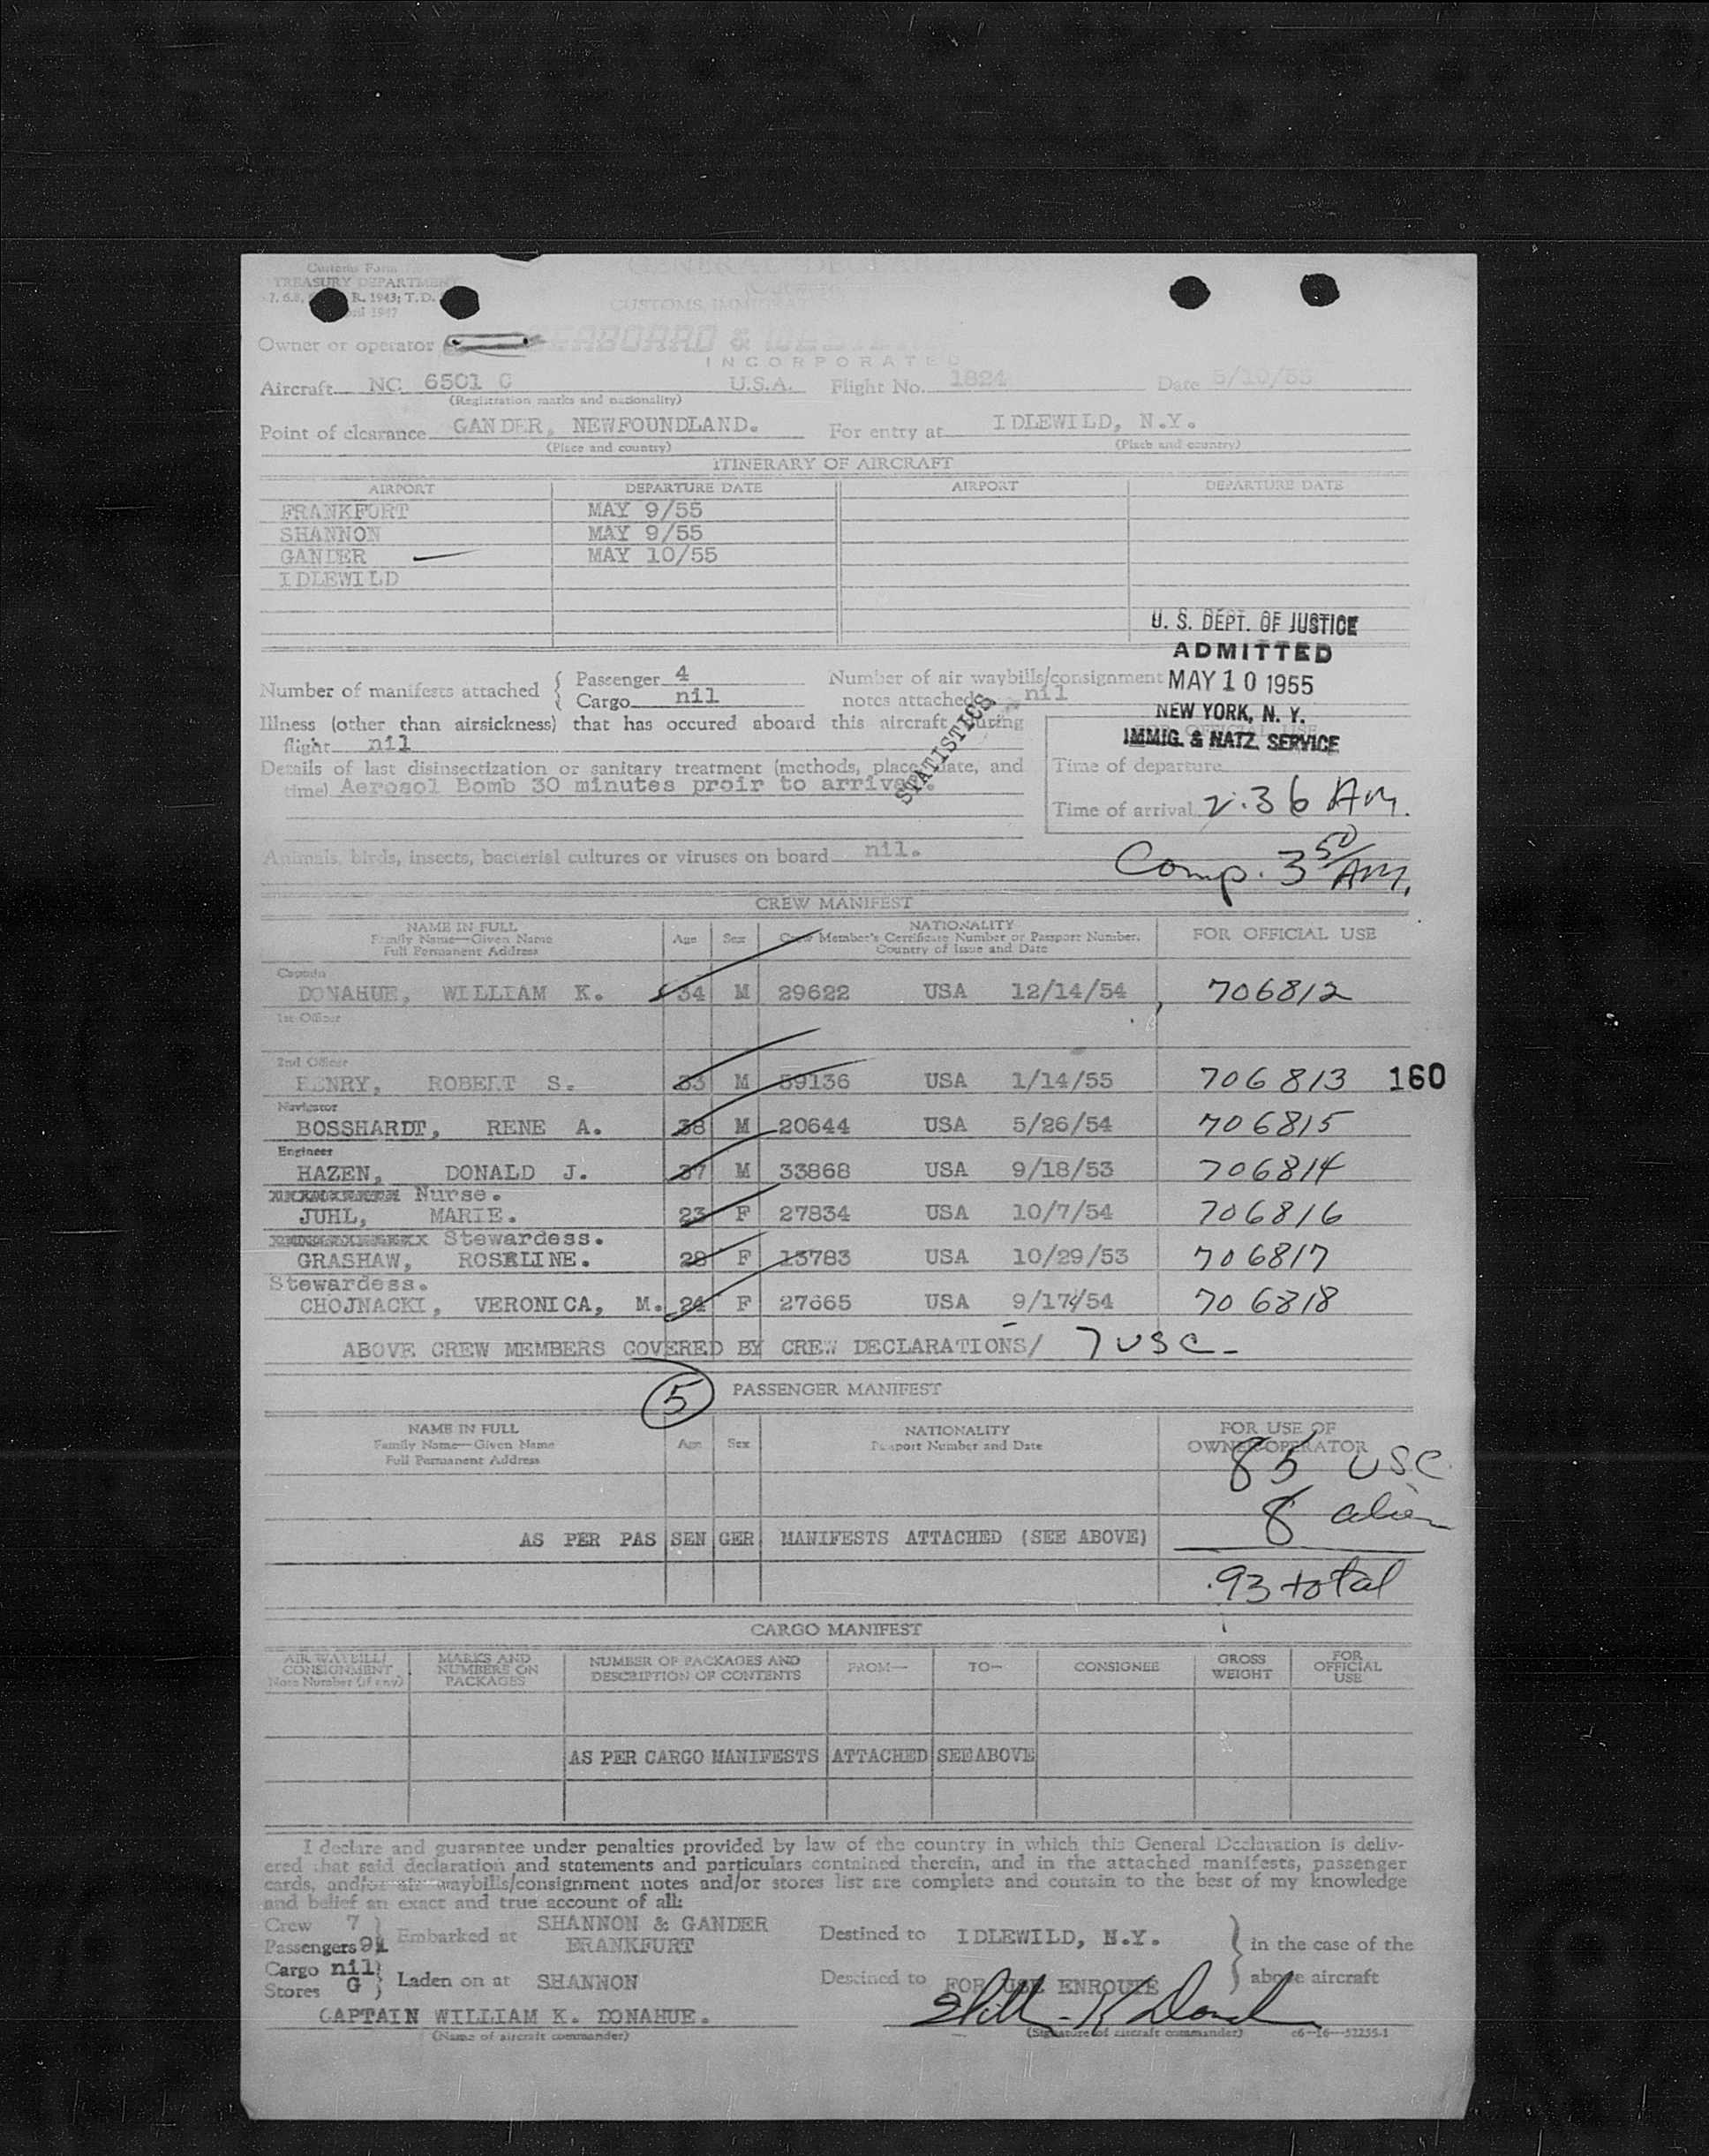 Customs Form
TREASURY DEPARTMENT
7. 6.8, R. 1943; T. D.
1947
GENERAL DECLARATION
CUSTOMS, IMMIGRATION
Owner or operator SEABOARD &
INCORPORATED
Aircraft NC 6501 C U.S.A. Flight No. 1824 Date 5/10/55
(Registration marks and nationality)
Point of clearance GANDER, NEWFOUNDLAND. For entry at IDLEWILD, N.Y.
(Place and country) (Place and country)
ITINERARY OF AIRCRAFT
AIRPORT DEPARTURE DATE AIRPORT DEPARTURE DATE
FRANKFURT MAY 9/55
SHANNON MAY 9/55
GANDER MAY 10/55
IDLEWILD
U. S. DEPT. OF JUSTICE
ADMITTED
MAY 10 1955
NEW YORK, N. Y.
IMMIG. & NATZ. SERVICE
Number of manifests attached { Passenger 4 Number of air waybills/consignment
Cargo nil notes attached nil
Illness (other than airsickness) that has occured aboard this aircraft during
flight nil
STATISTICS
Details of last disinsectization or sanitary treatment (methods, place, date, and
time) Aerosol Bomb 30 minutes proir to arrival.
FOR OFFICIAL USE
Time of departure
Time of arrival 2:36 AM.
Comp. 3 50/AM.
Animals, birds, insects, bacterial cultures or viruses on board nil.
CREW MANIFEST
NAME IN FULL
Family Name—Given Name
Full Permanent Address
Age Sex
NATIONALITY
Crew Member's Certificate Number or Passport Number,
Country of Issue and Date
FOR OFFICIAL USE
Captain
DONAHUE, WILLIAM K. 34 M 29622 USA 12/14/54 706812
1st Officer
2nd Officer
HENRY, ROBERT S. 33 M 59136 USA 1/14/55 706813 160
Navigator
BOSSHARDT, RENE A. 38 M 20644 USA 5/26/54 706815
Engineer
HAZEN, DONALD J. 37 M 33868 USA 9/18/53 706814
Nurse.
JUHL, MARIE. 23 F 27834 USA 10/7/54 706816
Stewardess.
GRASHAW, ROSELINE. 28 F 13783 USA 10/29/53 706817
Stewardess.
CHOJNACKI, VERONICA, M. 24 F 27665 USA 9/17/54 706818
ABOVE CREW MEMBERS COVERED BY CREW DECLARATIONS/ 7 USC-
5 PASSENGER MANIFEST
NAME IN FULL
Family Name—Given Name
Full Permanent Address
Age Sex
NATIONALITY
Passport Number and Date
FOR USE OF
OWNER-OPERATOR
85 USC
8 alien
AS PER PASSENGER MANIFESTS ATTACHED (SEE ABOVE)
93 total
CARGO MANIFEST
AIR WAYBILL/
CONSIGNMENT
Note Number (if any)
MARKS AND
NUMBERS ON
PACKAGES
NUMBER OF PACKAGES AND
DESCRIPTION OF CONTENTS
FROM— TO— CONSIGNEE
GROSS
WEIGHT
FOR
OFFICIAL
USE
AS PER CARGO MANIFESTS ATTACHED SEE ABOVE
I declare and guarantee under penalties provided by law of the country in which this General Declaration is deliv-
ered that said declaration and statements and particulars contained therein, and in the attached manifests, passenger
cards, and/or air waybills/consignment notes and/or stores list are complete and contain to the best of my knowledge
and belief an exact and true account of all:
Crew 7 } Embarked at SHANNON & GANDER Destined to IDLEWILD, N.Y. } in the case of the
Passengers FRANKFURT
Cargo nil } Laden on at SHANNON Destined to FOR USE ENROUTE above aircraft
Stores G
CAPTAIN WILLIAM K. DONAHUE.
(Name of aircraft commander) (Signature of aircraft commander) c6-16-52255-1